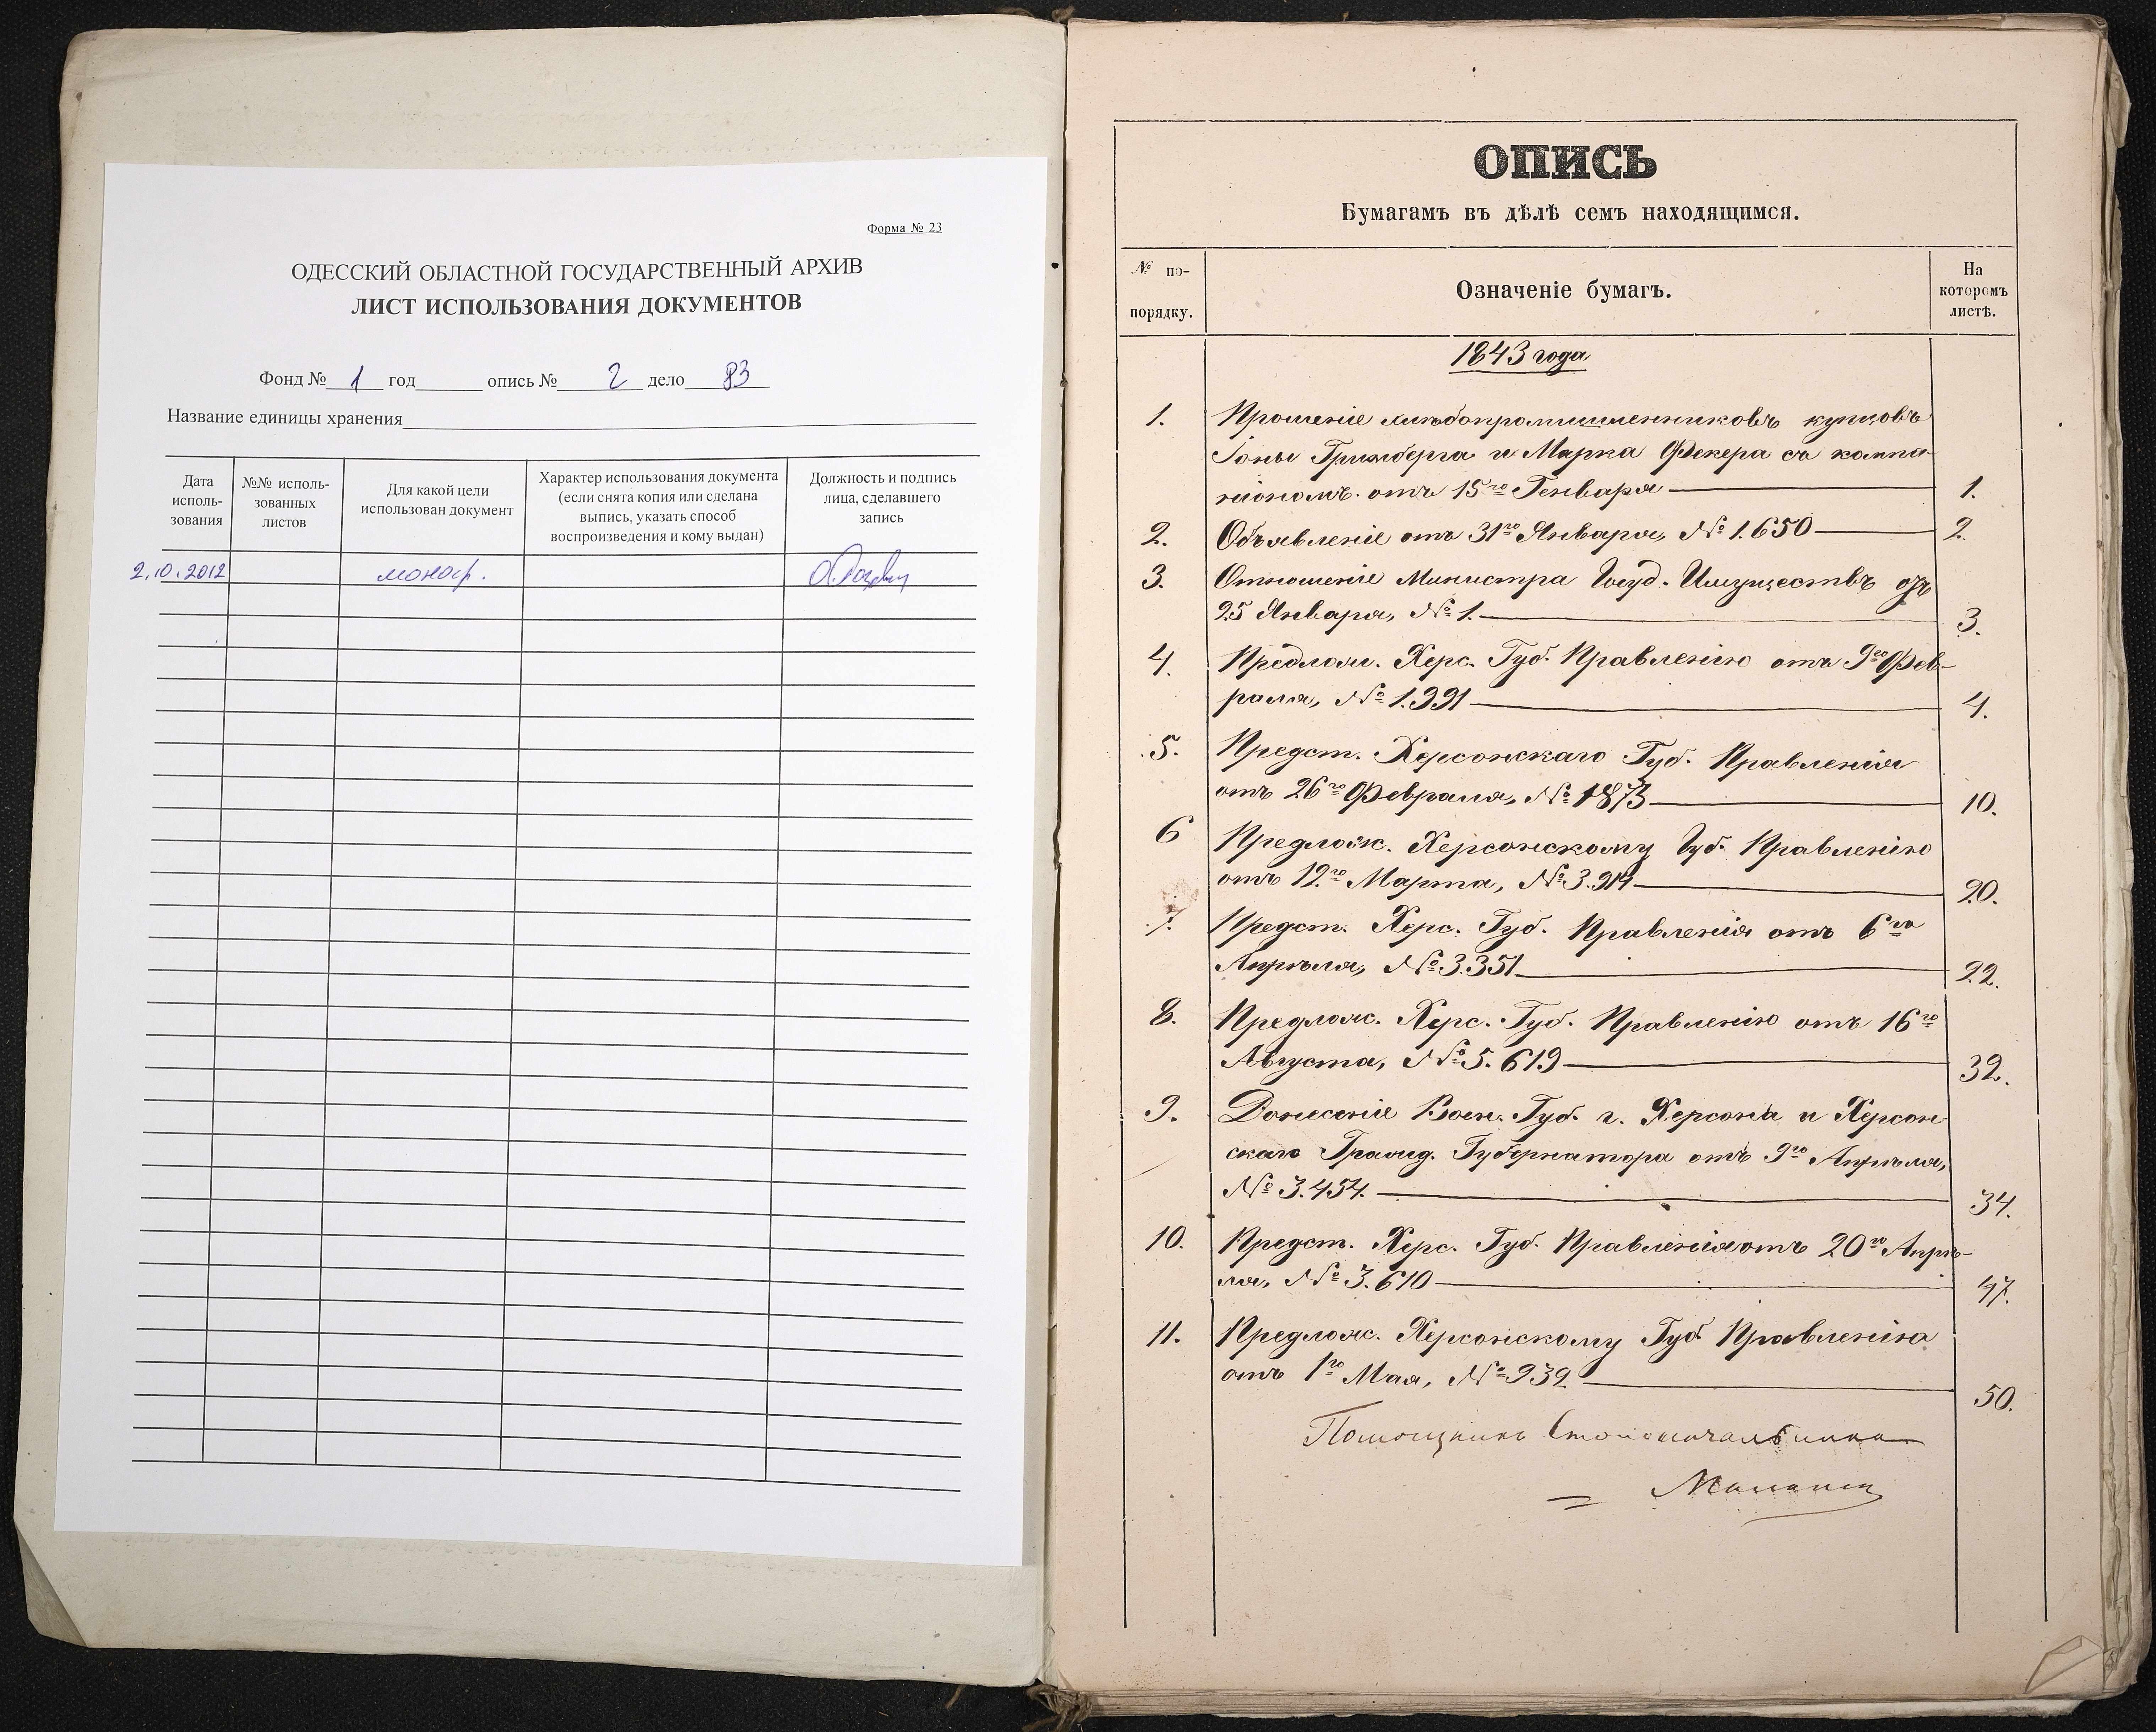 Форма № 23
ОДЕССКИЙ ОБЛАСТНОЙ ГОСУДАРСТВЕННЫЙ АРХИВ
ЛИСТ ИСПОЛЬЗОВАНИЯ ДОКУМЕНТОВ
Фонд № 1 год опись № 2 дело 83
Название единицы хранения
Дата
исполь-
зования
№№ исполь-
зованных
листов
Для какой цели
использован документ
Характер использования документа
(если снята копия или сделана
выпись, указать способ
воспроизведения и кому выдан)
Должность и подпись
лица, сделавшего
запись
2.10.2012 моногр.
ОПИСЬ
Бумагамъ въ дѣлѣ семъ находящимся.
№ по-
порядку.
Означеніе бумагъ.
На
которомъ
листѣ.
1843 года
1. Прошеніе хлѣбопромышленниковъ купцовъ
Іоны Гринберга и Марка Фекера съ компа-
ніономъ. отъ 15го Генваря 1.
2. Объявленіе отъ 31го Января, № 1.650 2.
3. Отношеніе Министра Госуд. Имуществъ отъ
25 Января, № 1. 3.
4. Предлож. Херс. Губ. Правленію отъ 9го Фев-
раля, № 1.991 4.
5. Предст. Херсонскаго Губ. Правленія
отъ 26го Февраля, № 1873 10.
6 Предлож. Херсонскому Губ. Правленію
отъ 12.го Марта, № 3.914 20.
7. Предст. Херс. Губ. Правленія отъ 6го
Апрѣля, № 3.351 22.
8. Предлож. Херс. Губ. Правленію отъ 16го
Августа, № 5.619 32.
9. Донесеніе Воен. Губ. г. Херсона и Херсон-
скаго Гражд. Губернатора отъ 9го Апрѣля,
№ 3.454. 34.
10. Предст. Херс. Губ. Правленія отъ 20го Апрѣ-
ля, № 3.610 47.
11. Предлож. Херсонскому Губ. Правленію
отъ 1го Мая, № 932 50.
Помощникъ Столоначальника